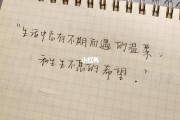 "生活中总有不期而遇的温柔,
和生生不息的希望."
小红书